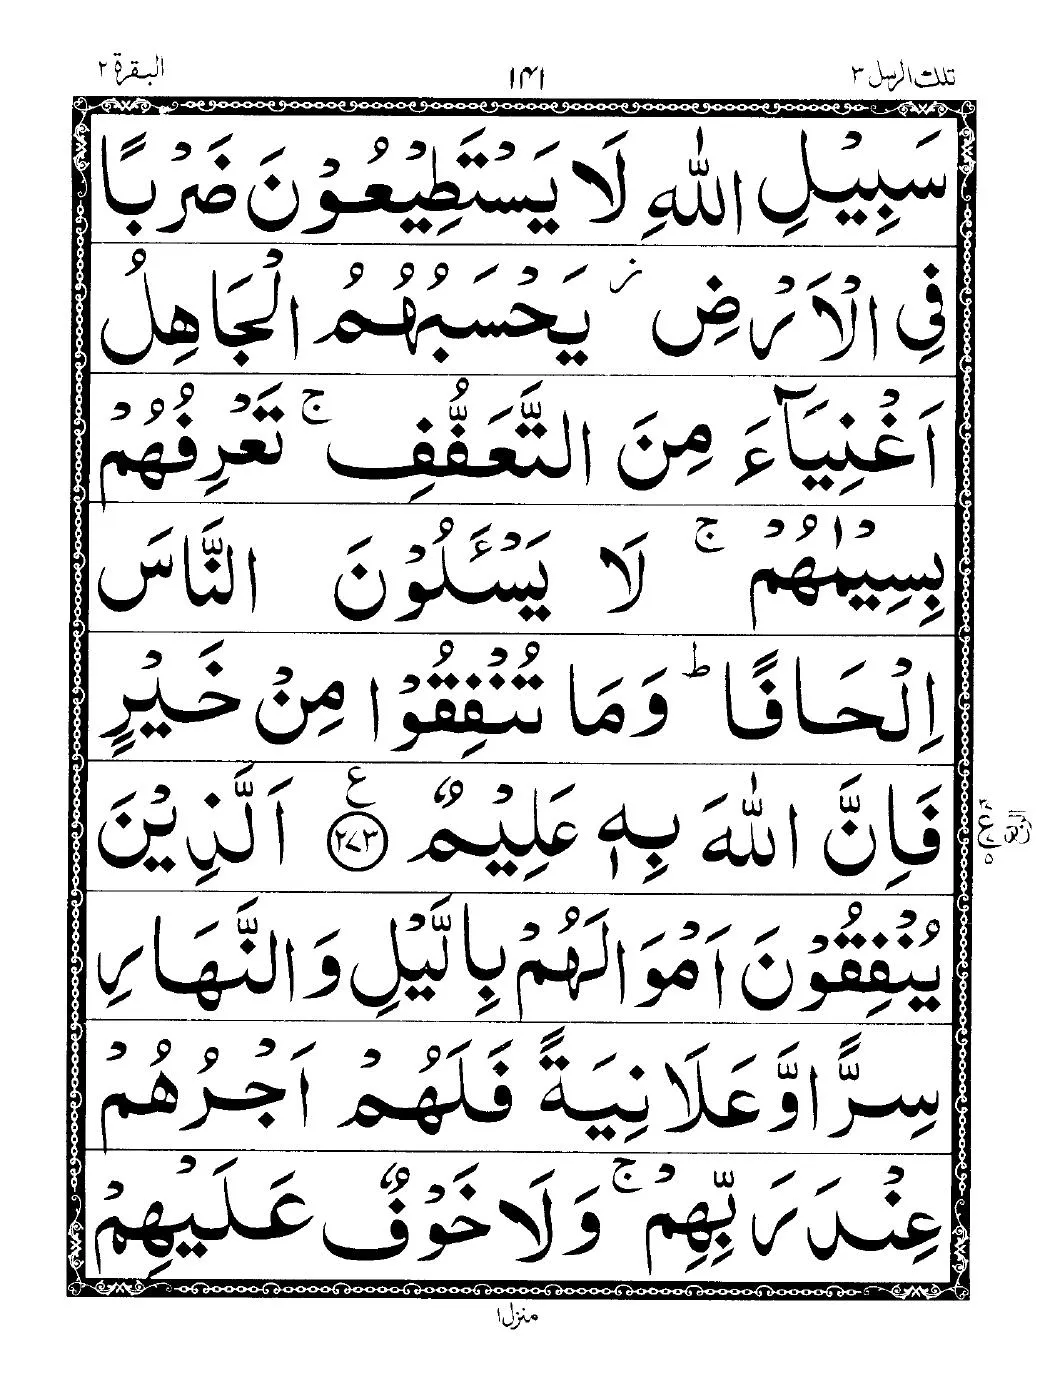 تلك الرسل ٣
١٤١
البقرة ٢
سَبِيْلِ اللّٰهِ لَا يَسْتَطِيْعُوْنَ ضَرْبًا
فِي الْاَرْضِ ز يَحْسَبُهُمُ الْجَاهِلُ
اَغْنِيَآءَ مِنَ التَّعَفُّفِ ۚ تَعْرِفُهُمْ
بِسِيْمٰىهُمْ ۚ لَا يَسْـَٔلُوْنَ النَّاسَ
اِلْحَافًا ؕ وَمَا تُنْفِقُوْا مِنْ خَيْرٍ
فَاِنَّ اللّٰهَ بِهٖ عَلِيْمٌ ع ﴿٢٧٣﴾ اَلَّذِيْنَ
يُنْفِقُوْنَ اَمْوَالَهُمْ بِالَّيْلِ وَالنَّهَارِ
سِرًّا وَّعَلَانِيَةً فَلَهُمْ اَجْرُهُمْ
عِنْدَ رَبِّهِمْ ۚ وَلَا خَوْفٌ عَلَيْهِمْ
منزل ١